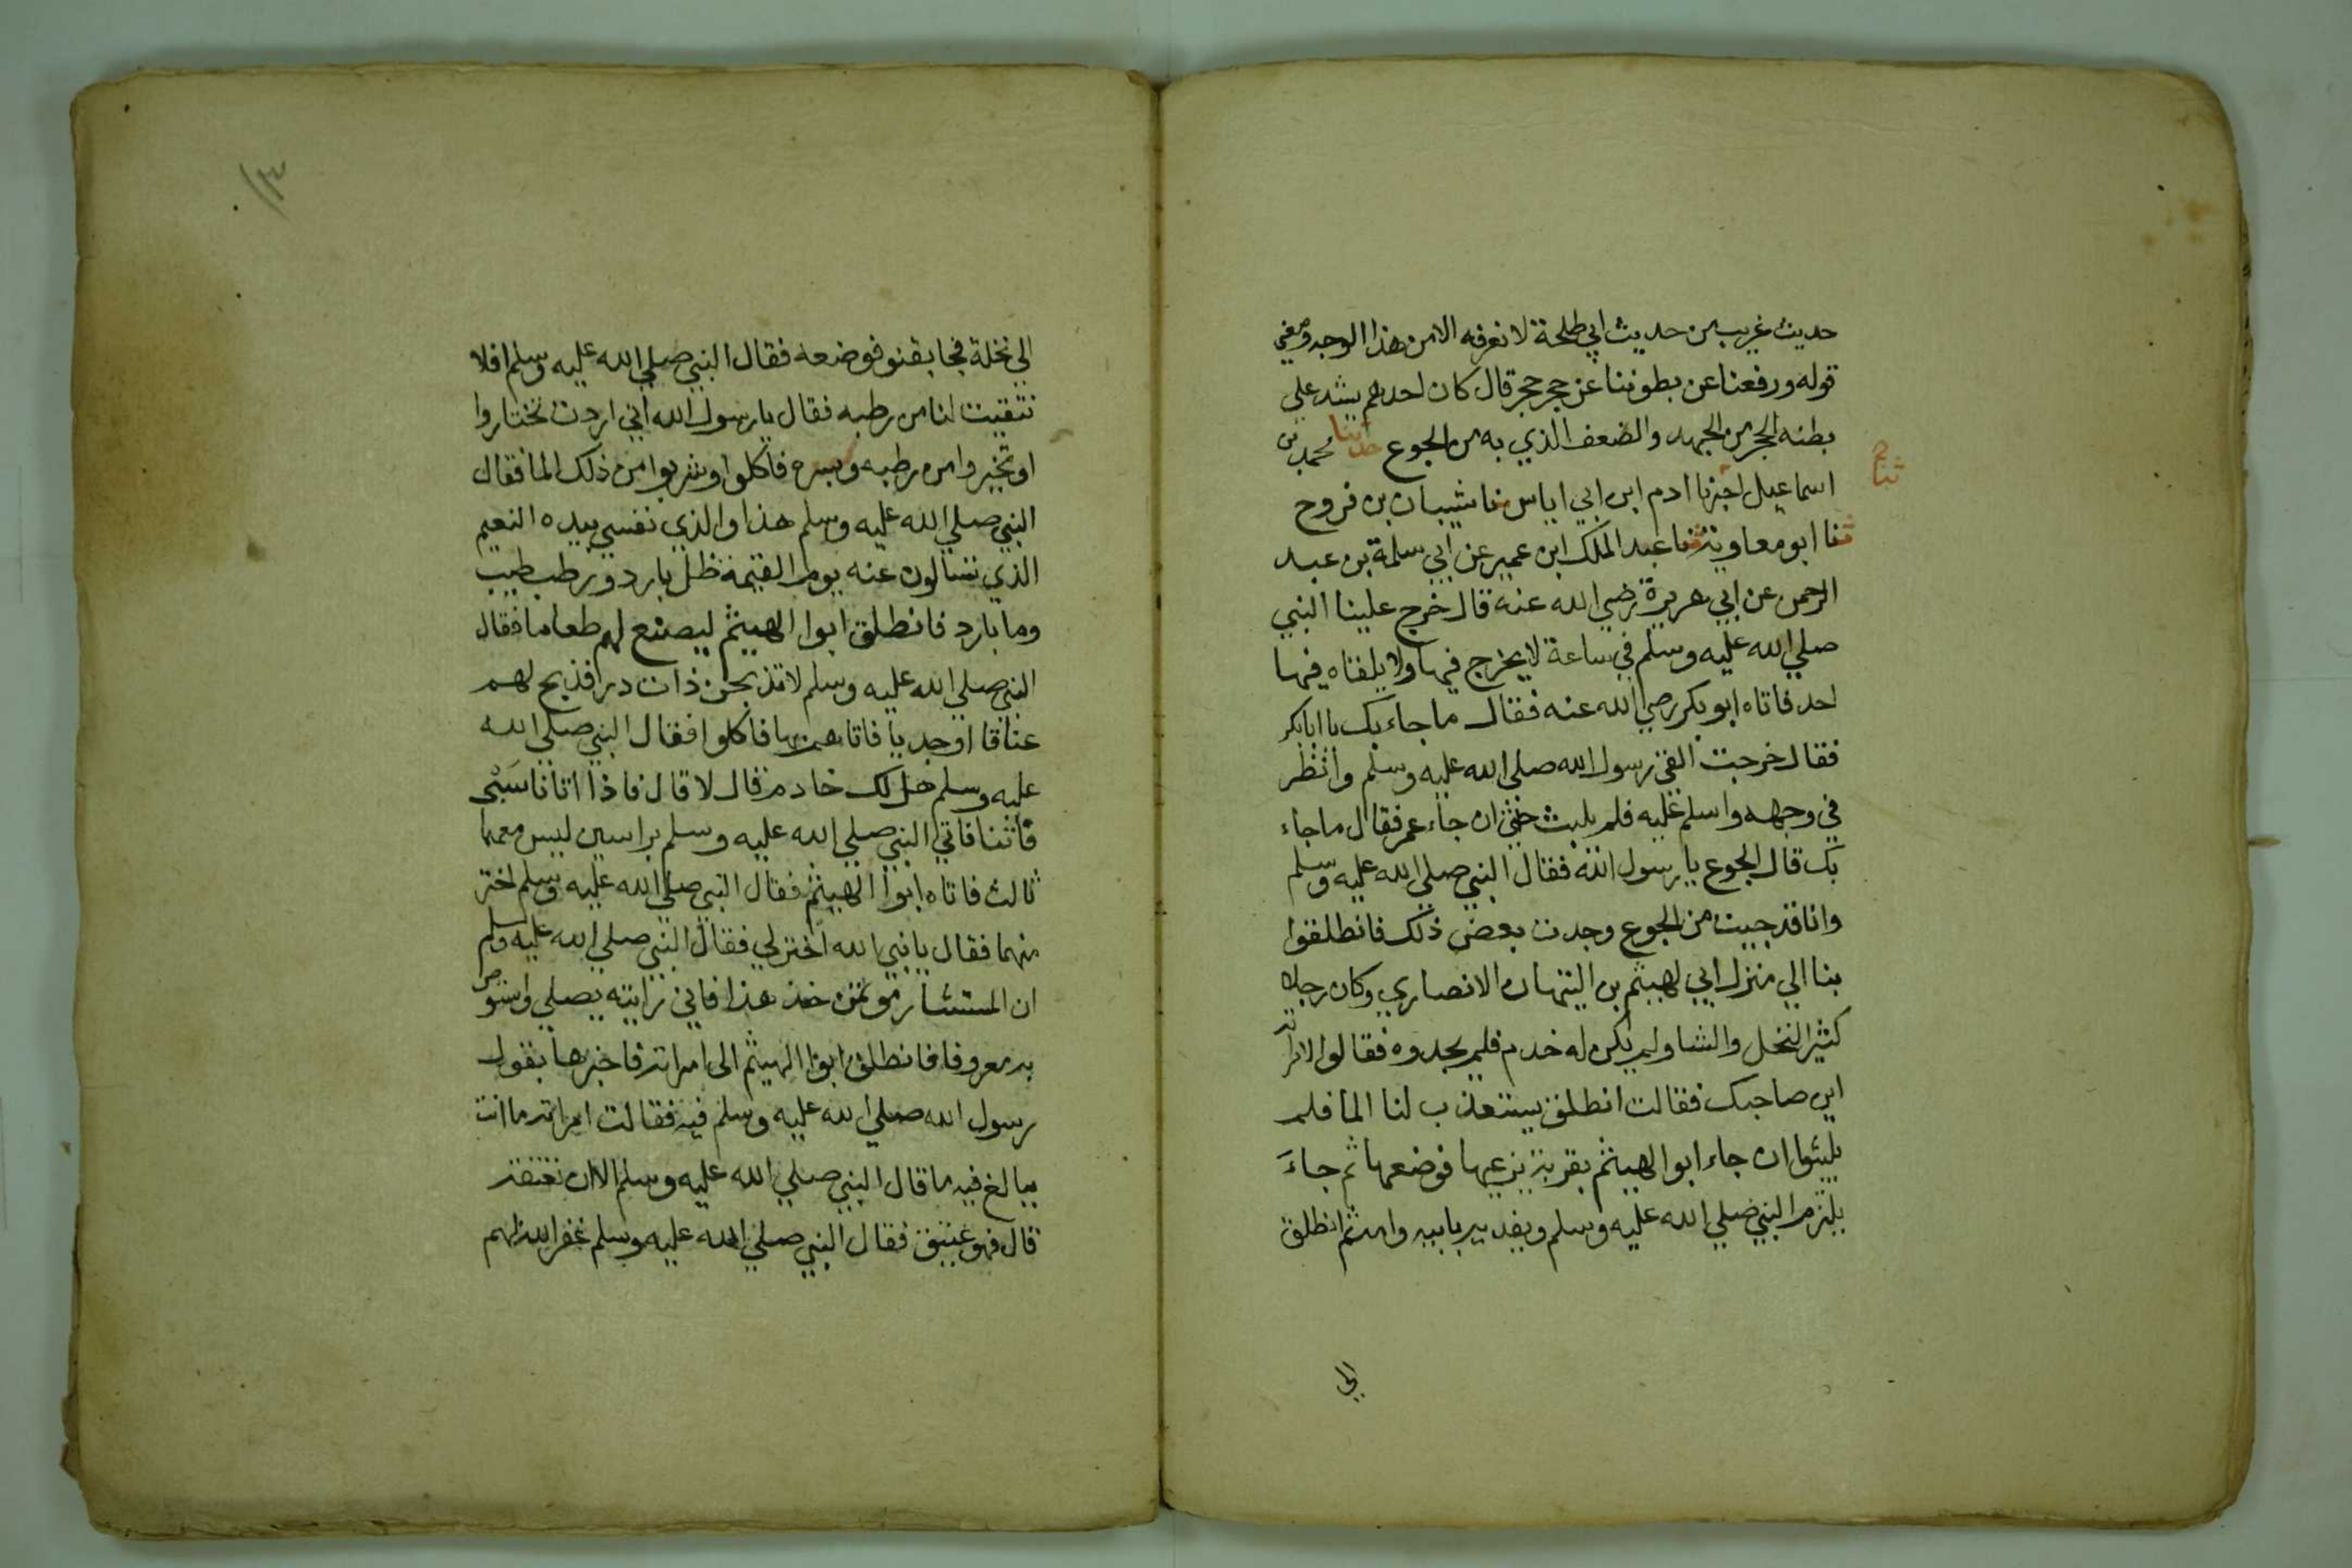 حديث غريب من حديث ابي طلحة لا نعرفه الا من هذا الوجه ومعني
قوله ورفعنا عن بطوننا عن حجر حجر قال كان احدهم يشد علي
بطنه الحجر من الجهد والضعف الذي به من الجوع حدثنا محمد بن
ثنا
اسماعيل اخبرنا ادم ابن ابي اياس ثنا شيبان بن فروح
ثنا ابو معاوية ثنا عبد الملك ابن عمير عن ابي سلمة بن عبد
الرحمن عن ابي هريرة رضي الله عنه قال خرج علينا النبي
صلي الله عليه وسلم في ساعة لا يخرج فيها ولا يلقاه فيها
احد فاتاه ابو بكر رضي الله عنه فقال ما جاء بك يا ابا بكر
فقال خرجت القي رسول الله صلي الله عليه وسلم وانظر
في وجهه واسلم عليه فلم يلبث حتي ان جاء عمر فقال ما جاء
بك قال الجوع يا رسول الله فقال النبي صلي الله عليه وسلم
وانا قد جيت من الجوع وجدت بعض ذلك فانطلقوا
بنا الي منزل ابي لهيثم بن التيهان الانصاري وكان رجلا
كثير النخل والشا ولم يكن له خدم فلم يجدوه فقالوا لامراته
اين صاحبك فقالت انطلق يستعذب لنا الما فلم
يلبثوا ان جاء ابو الهيثم بقربة يزعبها فوضعها ثم جاء
يلتزم النبي صلي الله عليه وسلم ويفديه بابيه وامه ثم انطلق
الي
الي نخلة فجا بقنو فوضعه فقال النبي صلي الله عليه وسلم افلا
نتقيت لنا من رطبه فقال يا رسول الله اني اردت تختاروا
او تخيروا من رطبه وبسره فاكلوا وشربوا من ذلك الما فقال
النبي صلي الله عليه وسلم هذا والذي نفسي بيده النعيم
الذي تسالون عنه يوم القيمة ظل بارد ورطب طيب
وما بارد فانطلق ابوا الهيثم ليصنع لهم طعاما فقال
النبي صلي الله عليه وسلم لا تذبحن ذات در فذبح لهم
عناقا او جديا فاتاهم بها فاكلوا فقال النبي صلي الله
عليه وسلم هل لك خادم قال لا قال فاذا اتانا سبى
فاتنا فاتي النبي صلي الله عليه وسلم براسين ليس معهما
ثالث فاتاه ابوا الهيثم فقال النبي صلي الله عليه وسلم اختر
منهما فقال يا نبي الله اختر لي فقال النبي صلي الله عليه وسلم
ان المستشار موتمن خذ هذا فاني رايته يصلي واستوص
به معروفا فانطلق ابوا الهيثم الى امراته فاخبرها بقول
رسول الله صلي الله عليه وسلم فيه فقالت امراته ما انت
ببالغ فيه ما قال النبي صلي الله عليه وسلم الا ان تعتقه
قال فهو عتيق فقال النبي صلي الله عليه وسلم غفر الله لهم